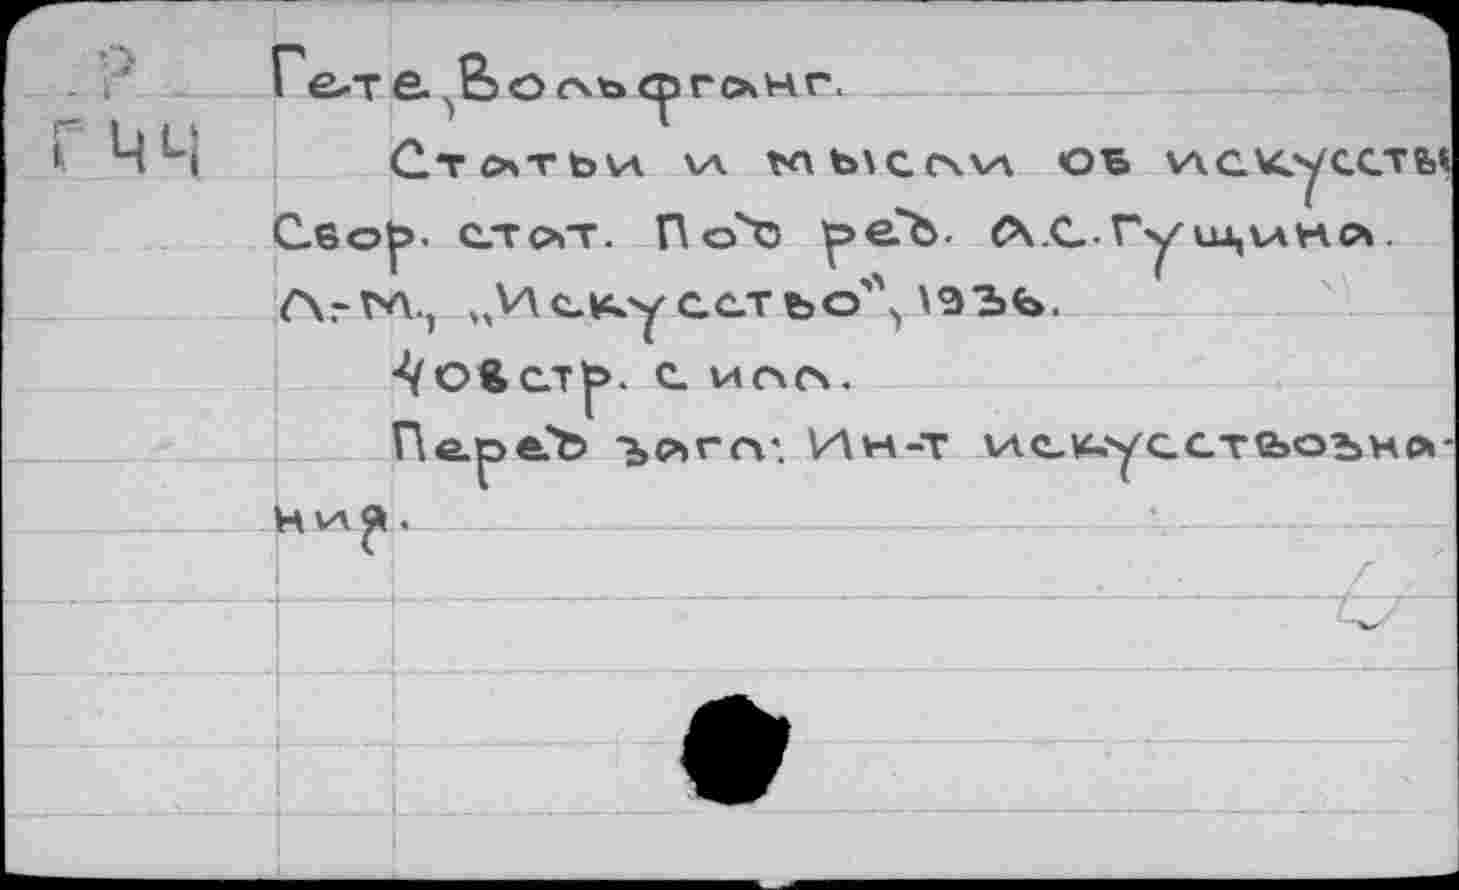 ?
Гете, Вольфганг.
Г 44
Статьи и мысли об искусств
Сбор. стат. Под ред. А.С.Гущина.
Л.-М., „Искусство", 1936.
408 стр. с илл.
Перед загл: Ин-т искусствозна-
ния.